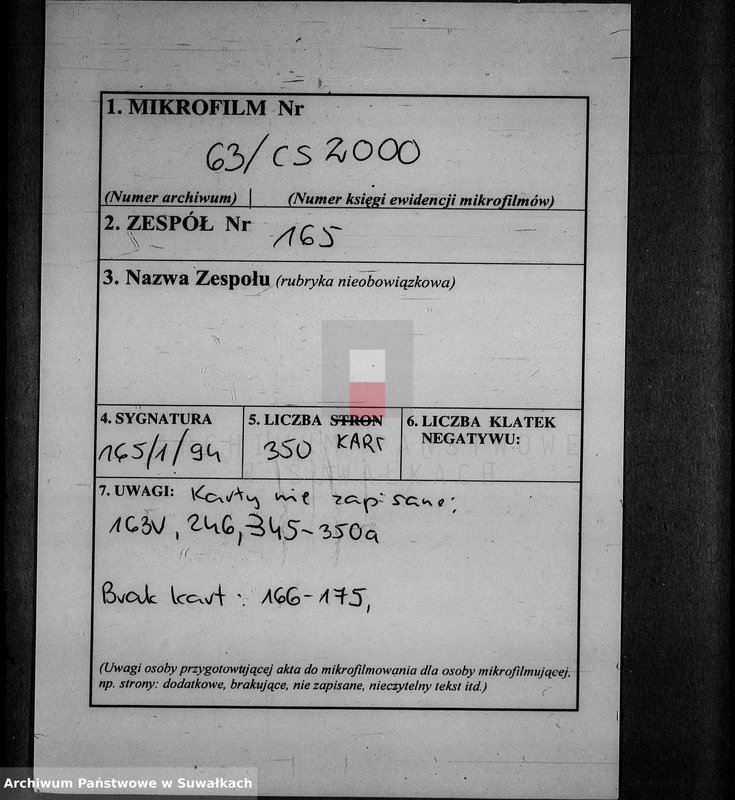 1. MIKROFILM Nr
63/CS2000
(Numer archiwum) (Numer księgi ewidencji mikrofilmów)
2. ZESPÓŁ Nr 165
3. Nazwa Zespołu (rubryka nieobowiązkowa)
4. SYGNATURA
165/1/94
5. LICZBA STRON
350 KART
6. LICZBA KLATEK
NEGATYWU:
7. UWAGI: Karty nie zapisane:
163v, 246, 345-350a
Brak kart: 166-175,
(Uwagi osoby przygotowującej akta do mikrofilmowania dla osoby mikrofilmującej,
np. strony: dodatkowe, brakujące, nie zapisane, nieczytelny tekst itd.)
ARCHIWUM PAŃSTWOWE
W SUWAŁKACH
Archiwum Państwowe w Suwałkach